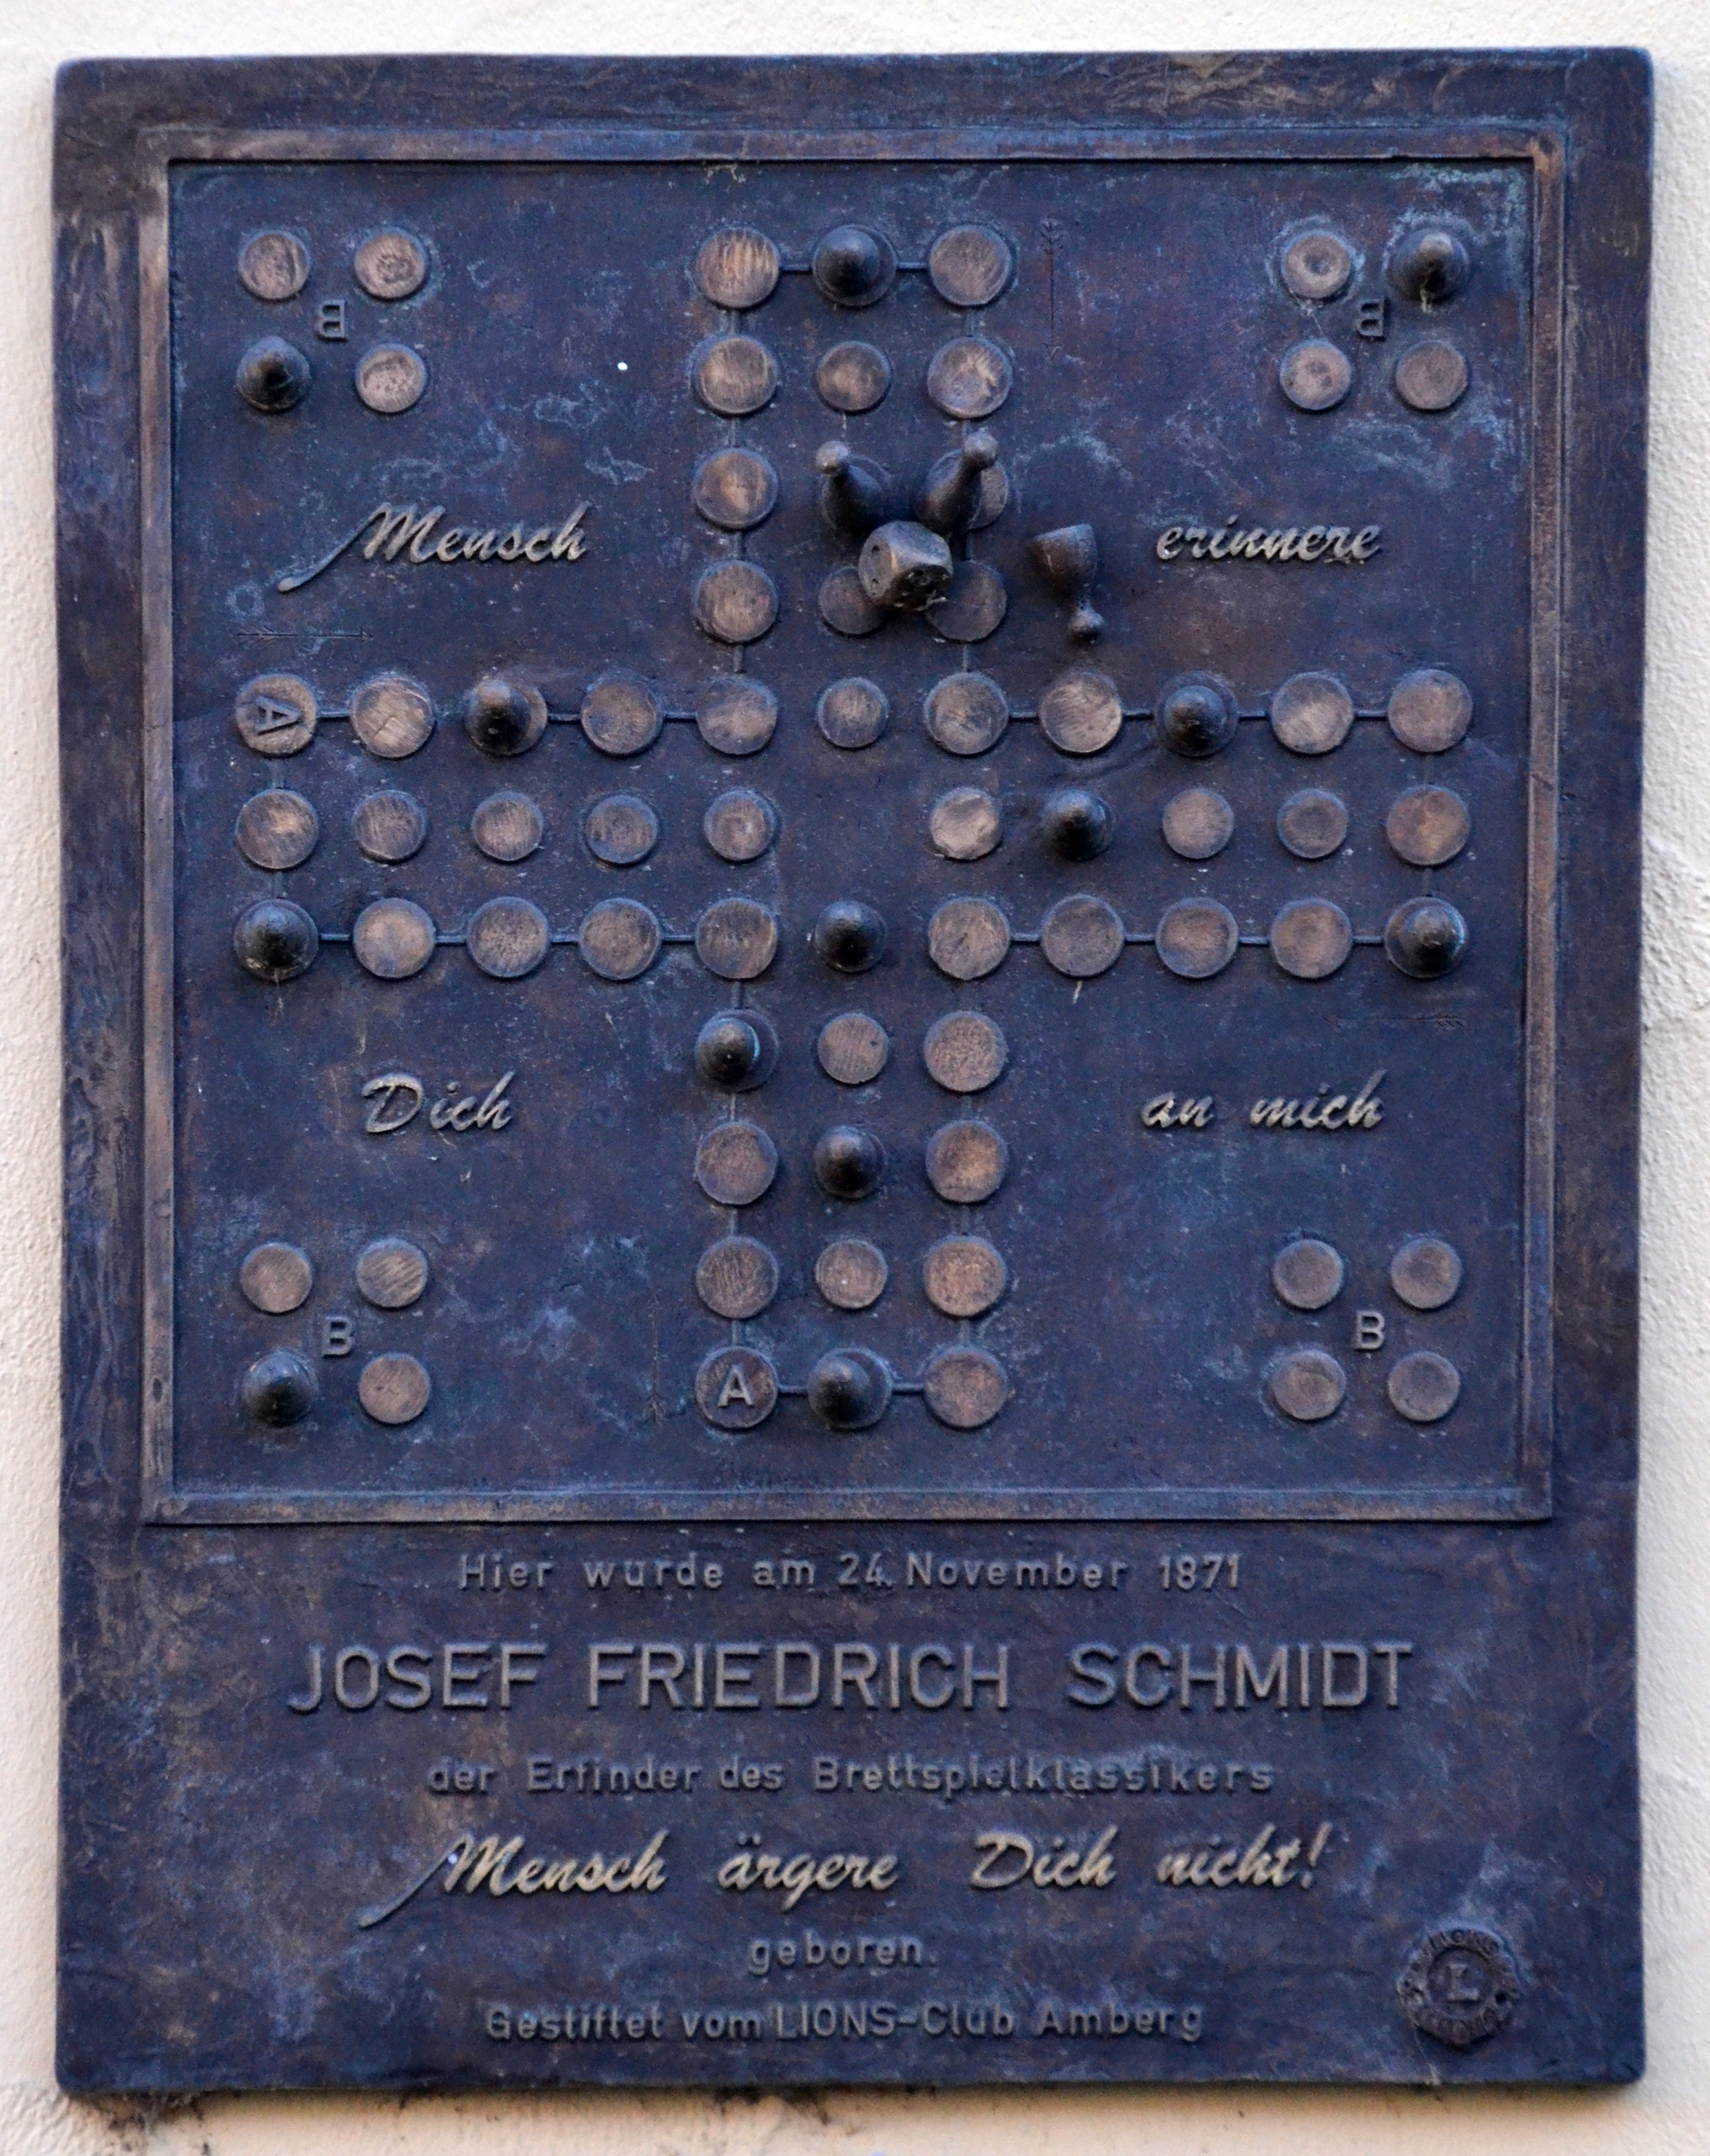 B B
Mensch erinnere
A
Dich an mich
B B
A
Hier wurde am 24. November 1871
JOSEF FRIEDRICH SCHMIDT
der Erfinder des Brettspielklassikers
Mensch ärgere Dich nicht!
geboren.
L
Gestiftet vom LIONS-Club Amberg